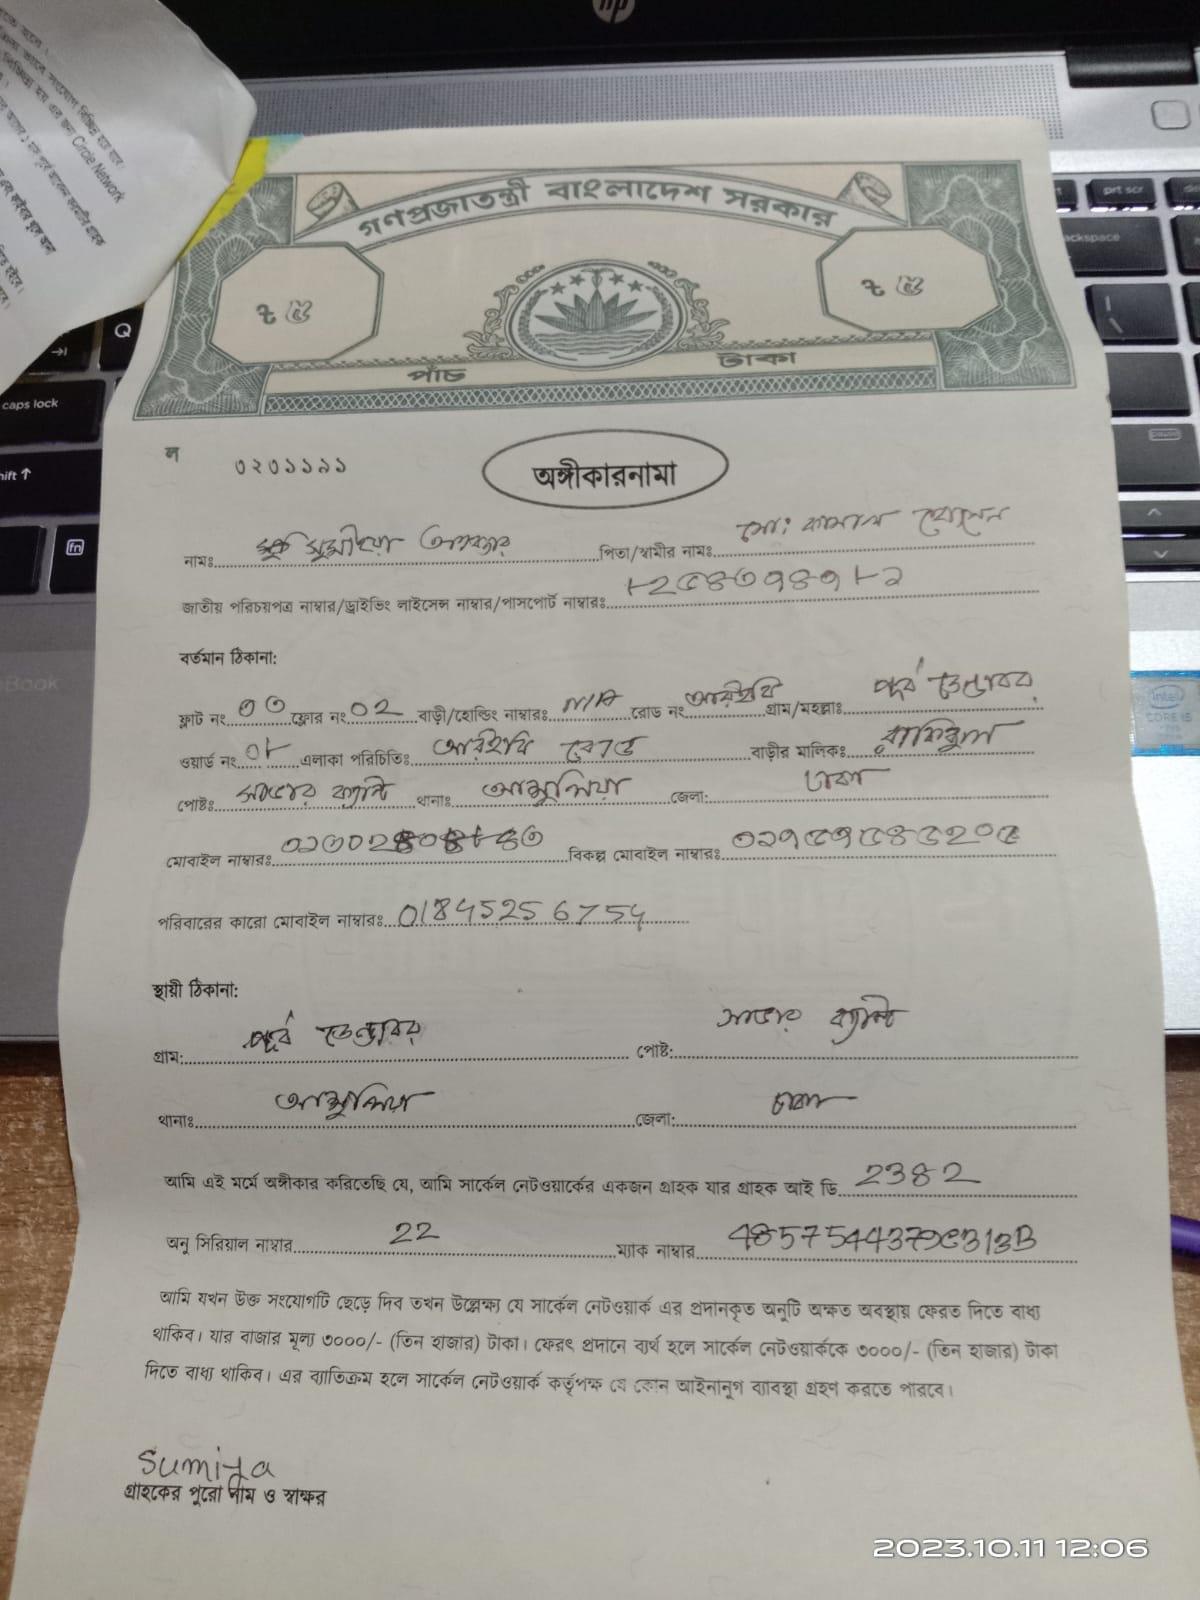 hp
Circle Network
prt scr
backspace
Q
caps lock
shift ↑
fn
Book
intel
CORE i5
গণপ্রজাতন্ত্রী বাংলাদেশ সরকার
৳ ৫
৳ ৫
পাঁচ টাকা
ল ৩২৩১১৯১
অঙ্গীকারনামা
নামঃ সুমাইয়া আক্তার পিতা/স্বামীর নামঃ মো: কামাল হোসেন
জাতীয় পরিচয়পত্র নাম্বার/ড্রাইভিং লাইসেন্স নাম্বার/পাসপোর্ট নাম্বারঃ
বর্তমান ঠিকানা:
ফ্লাট নং ৩৩ ফ্লোর নং ০২ বাড়ী/হোল্ডিং নাম্বারঃ N/A রোড নং আরইবি গ্রাম/মহল্লাঃ
ওয়ার্ড নং ০৮ এলাকা পরিচিতিঃ আরইবি রোড বাড়ীর মালিকঃ
পোষ্টঃ সাভার ক্যান্ট থানাঃ আশুলিয়া জেলা: ঢাকা
মোবাইল নাম্বারঃ বিকল্প মোবাইল নাম্বারঃ
পরিবারের কারো মোবাইল নাম্বারঃ 01845256754
স্থায়ী ঠিকানা:
গ্রাম: পোষ্ট: সাভার ক্যান্ট
থানাঃ আশুলিয়া জেলা: ঢাকা
আমি এই মর্মে অঙ্গীকার করিতেছি যে, আমি সার্কেল নেটওয়ার্কের একজন গ্রাহক যার গ্রাহক আই ডি 2382
অনু সিরিয়াল নাম্বার 22 ম্যাক নাম্বার
আমি যখন উক্ত সংযোগটি ছেড়ে দিব তখন উল্লেক্ষ্য যে সার্কেল নেটওয়ার্ক এর প্রদানকৃত অনুটি অক্ষত অবস্থায় ফেরত দিতে বাধ্য
থাকিব। যার বাজার মূল্য ৩০০০/- (তিন হাজার) টাকা। ফেরৎ প্রদানে ব্যর্থ হলে সার্কেল নেটওয়ার্ককে ৩০০০/- (তিন হাজার) টাকা
দিতে বাধ্য থাকিব। এর ব্যাতিক্রম হলে সার্কেল নেটওয়ার্ক কর্তৃপক্ষ যে কোন আইনানুগ ব্যাবস্থা গ্রহণ করতে পারবে।
Sumiya
গ্রাহকের পুরো নাম ও স্বাক্ষর
2023.10.11 12:06